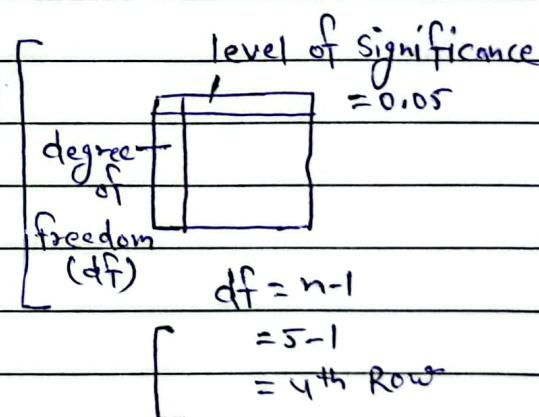 level of significance
= 0.05
degree
of
freedom
(df)
df = n-1
= 5-1
= 4th Row